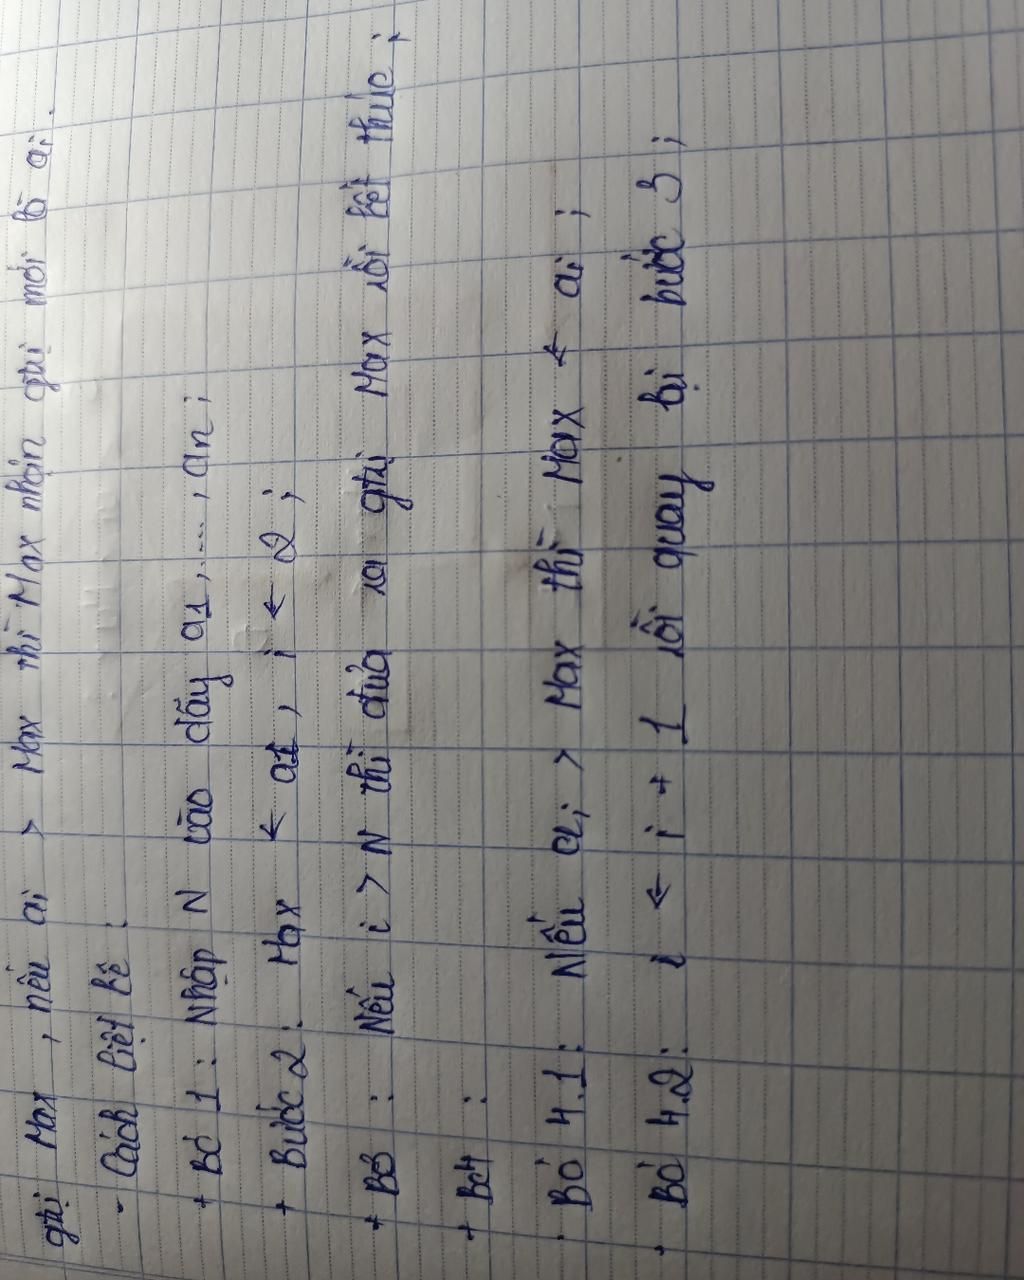 gtrị Max, nếu ai > Max thì Max nhận gtrị mới là ai.
- Cách liệt kê :
+ Bc 1 : Nhập N vào dãy a1,..., an ;
+ Bước 2 : Max ← a1, i ← 2 ;
+ Bc3 : Nếu i > N thì đưa ra gtrị Max rồi kết thúc ;
+ Bc4 :
. Bc 4.1 : Nếu ai > Max thì Max ← ai ;
. Bc 4.2 : i ← i + 1 rồi quay lại bước 3 ;